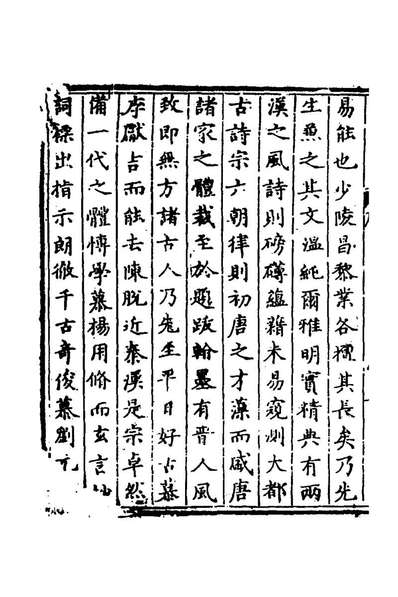 易能也少陵昌黎業各擅其長矣乃先
生兼之其文溫純爾雅明實精典有兩
漢之風詩則磅礴蘊藉未易窺測大都
古詩宗六朝律則初唐之才藻而盛唐
諸家之體裁至於題跋翰墨有晉人風
致即無方諸古人乃先生平日好古慕
李獻吉而能去陳脫近秦漢是宗卓然
備一代之體博學慕楊用脩而玄言
詞標出指示朗徹千古奇俊慕劉元